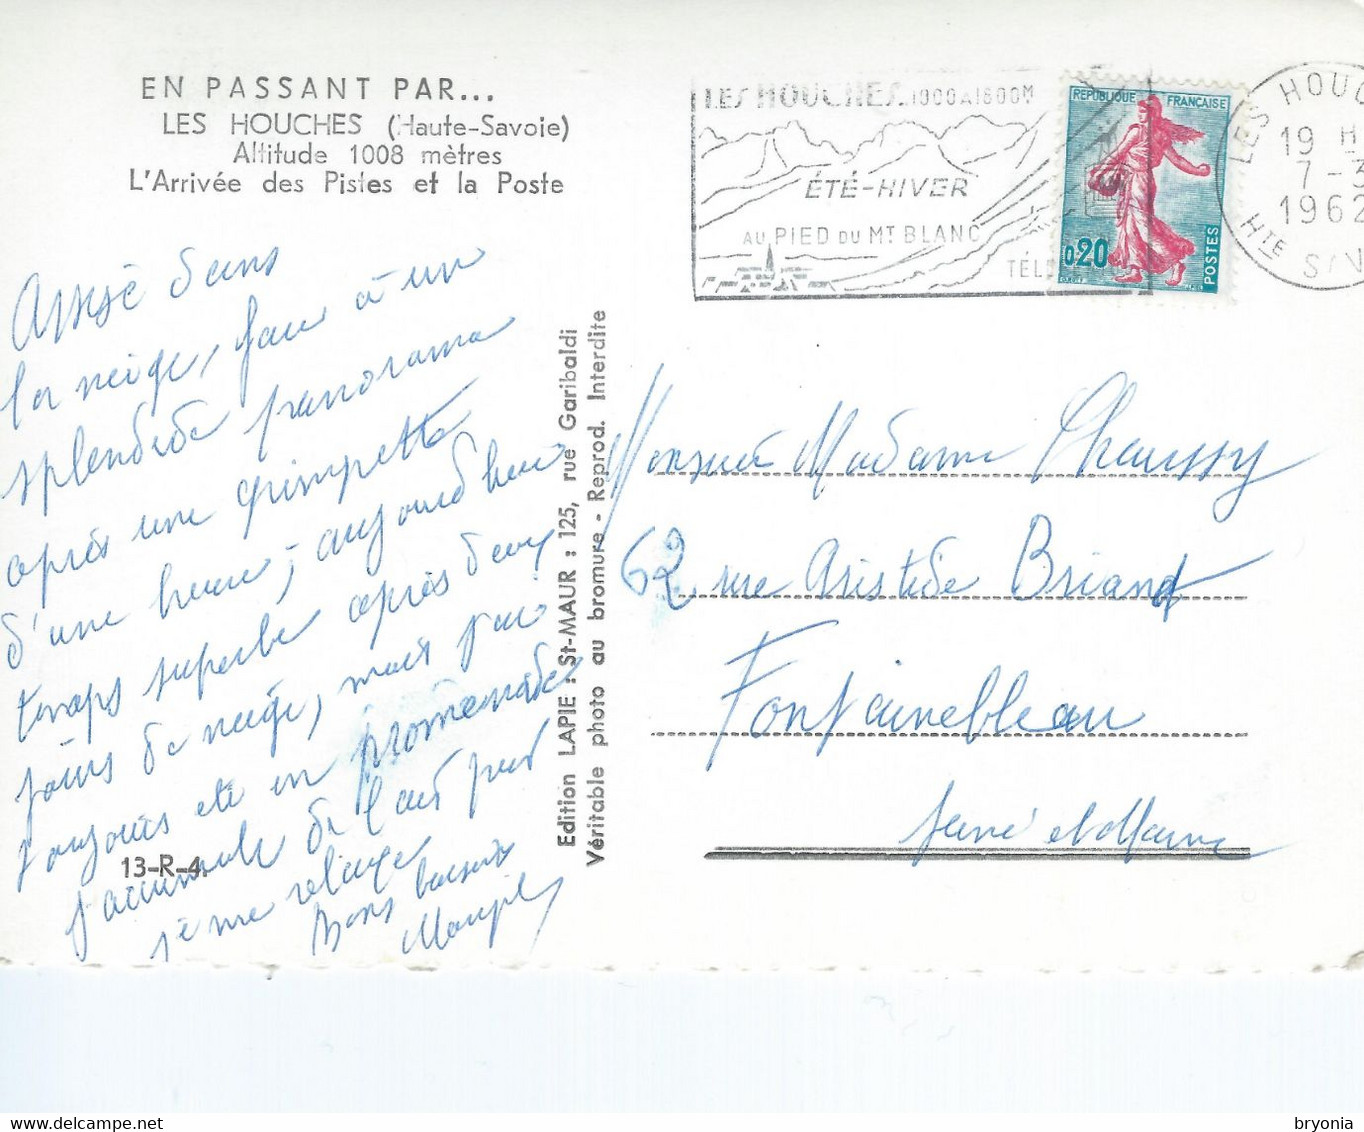 EN PASSANT PAR...
LES HOUCHES (Haute-Savoie)
Altitude 1008 mètres
L'Arrivée des Pistes et la Poste
LES HOUCHES 1000 A 1800 M
ÉTÉ-HIVER
AU PIED DU MT BLANC
REPUBLIQUE FRANÇAISE
0,20
POSTES
LES HOUC
19 H
7 - 3
1962
HTE SAV
Assise dans
la neige, face à un
splendide panorama
après une grimpette
d'une heure, aujourd'hui
temps superbe après deux
jours de neige, mais j'ai
toujours été en promenade
j'accumule de l'air pur
Bons baisers
13-R-4.
Edition LAPIE : St-MAUR : 125, rue Garibaldi
Véritable photo au bromure - Reprod. Interdite
Monsieur Madame Chaussy
62 rue Aristide Briand
Fontainebleau
Seine et Marne
bryonia